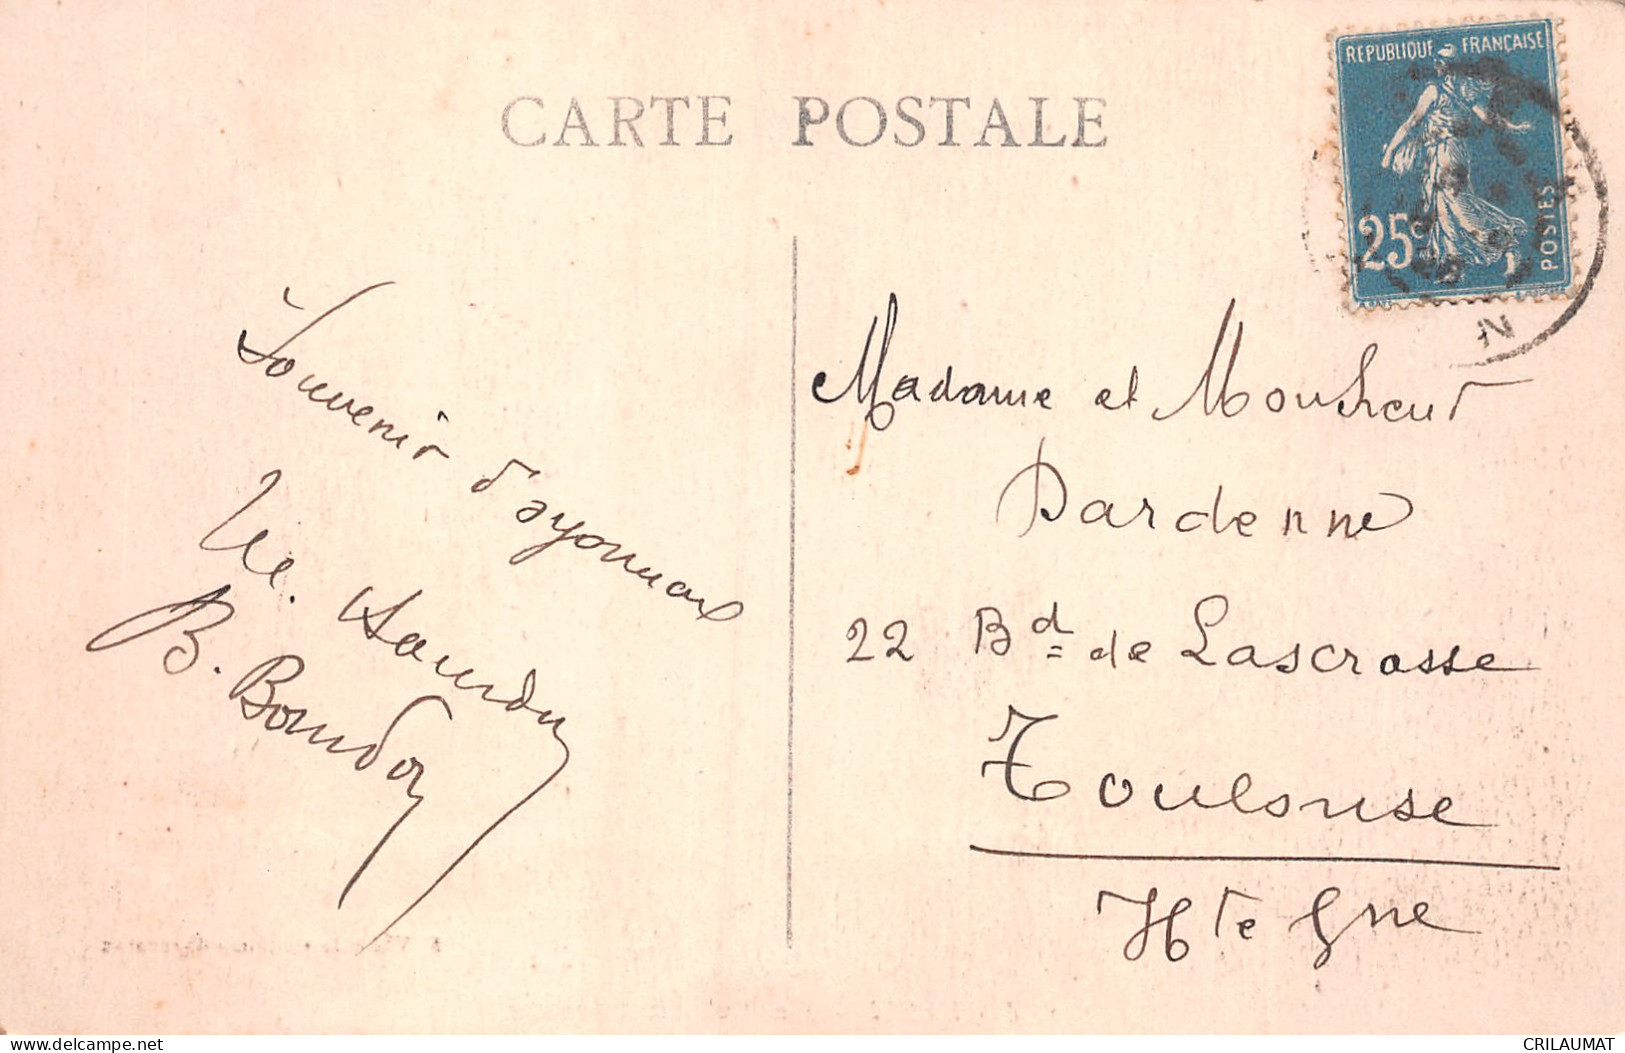 CARTE POSTALE
REPUBLIQUE FRANÇAISE
25c
POSTES
Souvenir d'ayonnax
B. Boudoy
Madame et Monsieur
Dardenne
22 Bd de Lascrosse
Toulouse
Hte Gne
www.delcampe.net
CRILAUMAT